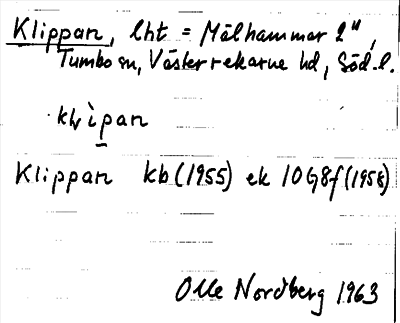 Klippan, lht = Mälhammar 2",
Tumbo sn, Västerrekarne hd, Söd. l.
klìpan
Klippan kb (1955) ek 10G8f (1958)
Olle Nordberg 1963